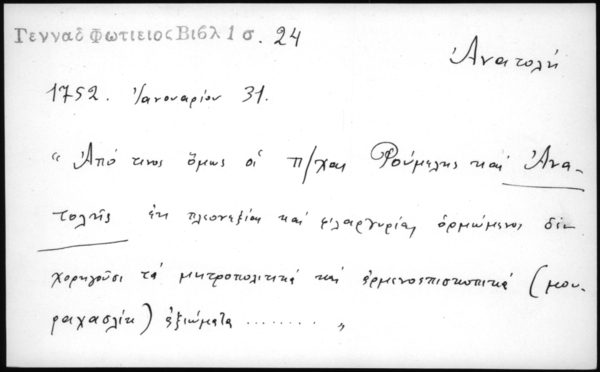 Γενναδ Φωτιειος Βιβλ 1 σ. 24
Ἀνατολή
1752. Ἰανουαρίου 31.
" Ἀπό τινος ὅμως οἱ π/χαι Ρούμελης καί Ἀνα-
τολῆς ἐκ πλεονεξίας καί φιλαργυρίας ὁρμώμενοι δέν
χορηγοῦσι τά μητροπολιτικά καί ἀρμενοεπισκοπικά (μου-
ραχασλίκ) ἀξιώματα ........ "